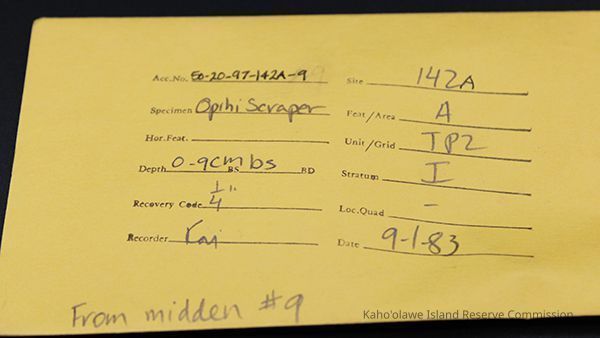 Acc.No. 50-20-97-142A-9
Site 142A
Specimen Opihi Scraper
Feat/Area A
Hor.Feat.
Unit/Grid TP2
Depth 0-9cm bs BS BD
Stratum I
Recovery Code 1/4"
Loc.Quad -
Recorder Kai
Date 9-1-83
From midden #9
Kaho'olawe Island Reserve Commission